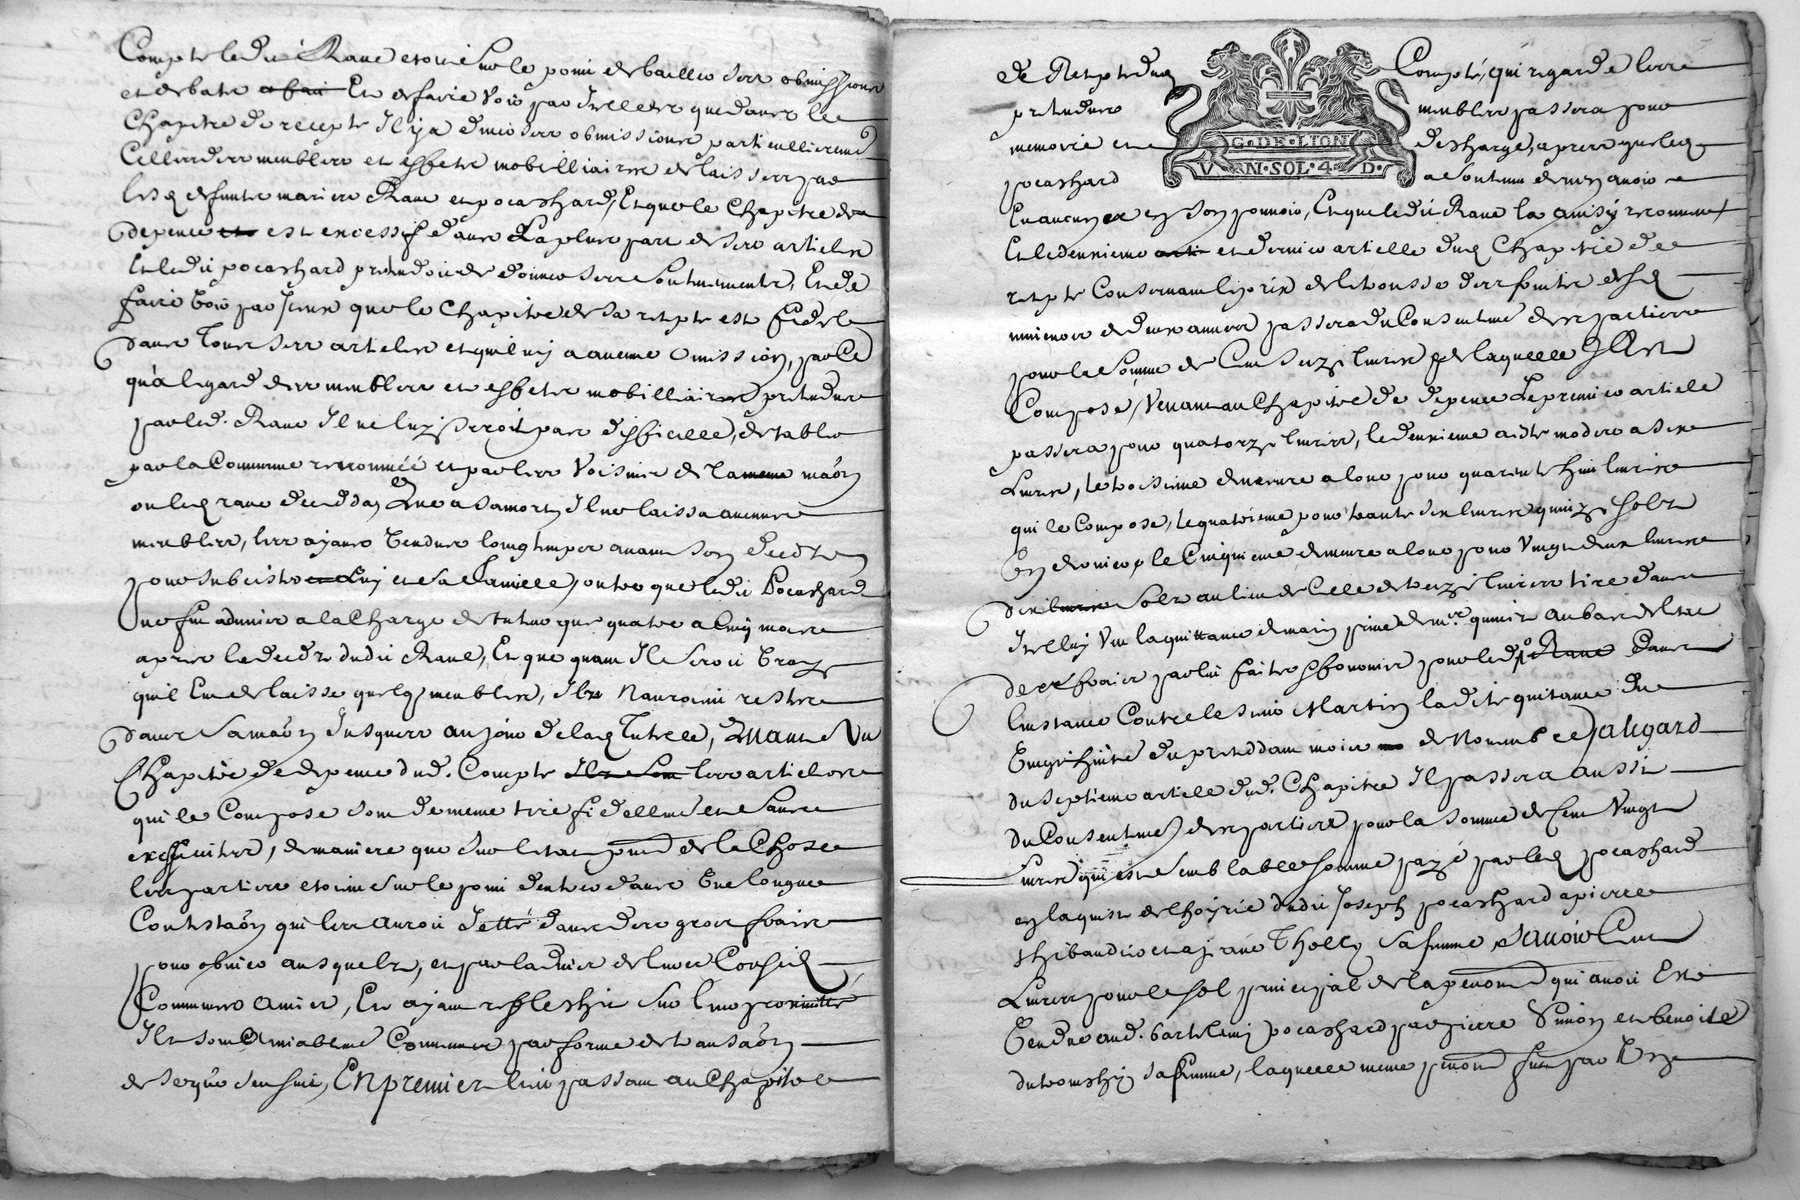 Compte ledit Rane etoit sur le point de bailler ses obmissions
et debats et de faire voir par icelles que dans le
Chapitre de recepte Il y a diverses obmissions particullierement
Celles des meubles et effets mobilliaires delaisses par
lesd defunts maries Rane et pocachard, Et que le Chapitre de
depence est excessif dans La plus part de ses articles
Et ledit pocachard pretendoit de donner ses soutenements, Et de
faire voir par Iceux que le Chapitre de sa recepte est fidele
dans tous ses articles et qu'il n'y a aucune omission, parce
qu'a legard des meubles et effets mobilliaires pretendus
par led. Rane Il ne luy seroit pas difficille, detablir
par la Commune renommée et par les Voisins de la meme maōn
ou led rane deceddā que a sa mort Il ne laissa aucuns
meubles, les ayant vendus longtemps avant son decds
pour subcister luy et sa famille, outre que ledit Pocachard
ne fut admis a la Charge de tuteur que quatre a Cinq mois
apres le deceds dudit Rane, Et que quant Il seroit vray
qu'il Eut delaisse quelq meubles, Ils Nauroient restes
dans sa maōn Jusques au jour de lad Tutelle, Quant au
Chapitre de depence dud. Compte les articles
qui le Compose sont de meme tire fidellement et sans
exces, de maniere que sur letat pnt de la Chose
les parties etoient sur le point dentrer dans Une longue
Contestaōn qui les auroit Jetté dans des gros frais
pour obvier ausquels, et par ladvis de leurs Conseils
Communs amis, Et ayant refflechit sur leur proximitté
Ils sont amiablement Convenus par forme de transaōn
de ce qui sensuit, EN premier lieu passant au Chapitre
de Recepte dud Compté, qui regarde les
pretendus meubles passera pour
memoire et decharge, apres que led
pocachard a soutenu de n'en avoir
En aucun en son pouvoir, Et que ledit Rane la ainsy reconnut
Et le deuxieme et dernier article dud Chapitre de
recepte Consernant le prix de
mineur de deux annees passera du Consentement des parties
pour la somme de Cent seize livres de laquelle Il Est
Compose, Venant au Chapitre de depence Le premier article
passera pour quatorze livres, le deuxieme a este modere a six
Livres, le troisieme demeure aloue pour quarente huit livres
qui le Compose, le quatrieme pour trante six livres quinze sols
deniers, le Cinquieme demeure aloue pour Vingt deux livres
dix sols au lieu de Celle de treize livres tire dans
Icelluy Vu la quittance demain privé de mr. au bas de letat
de ces frais par luy faits pour led Dans
Linstance Contre le sieur Martin ladite quitance du
Vingt huit du present moie de Novembre Jalegard
du septieme article dud. Chapitre Il passera aussi
du Consentement des parties pour la somme de Cent Vingt
Livres qui est semblable somme payé par led pocachard
en laquitte de lhoirie dudit Joseph pocachard a pierre
thibaudier et a jeane Tholly sa femme, scavoir Cent
Livres pour le sol principal de la pention qui avoit Esté
Vendue aud. bartelemi pocachard par pierre Simon et benoite
sa femme, laquelle meme pention fut par